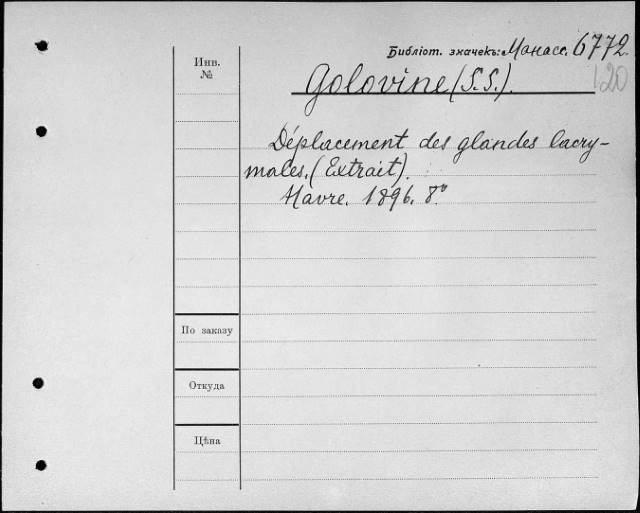 Библіот. значекъ: Монасс. 6772.
120
Инв.
№
Golovine (S.S.).
Déplacement des glandes lacry-
males. (Extrait).
Havre. 1896. 8°.
По заказу
Откуда
Цѣна